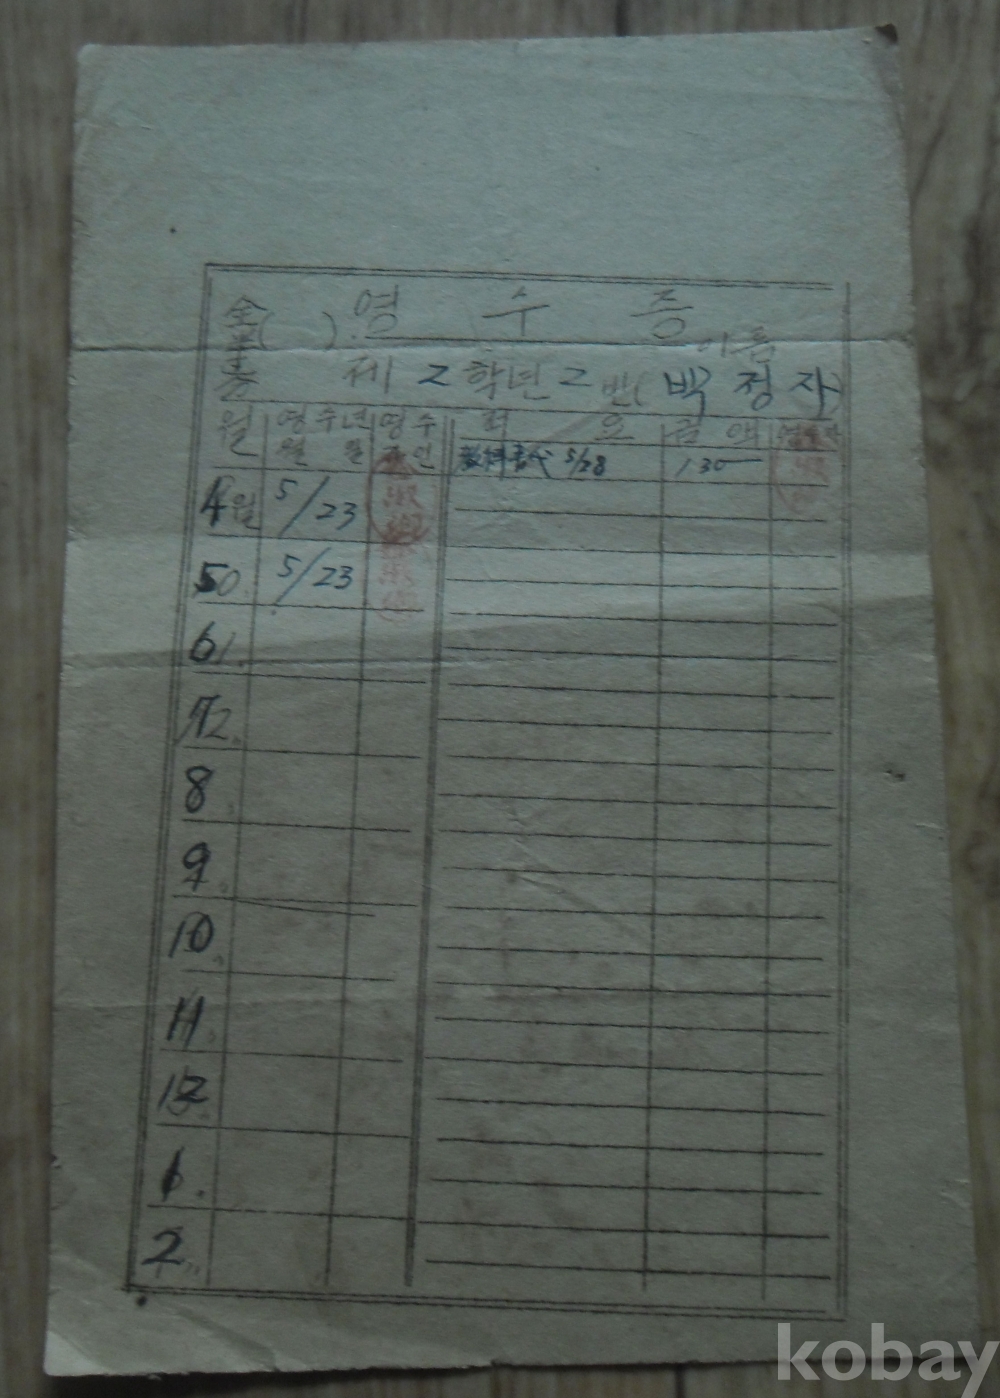 ( ) 영 수 증
이름
제 2 학년 2 반( 박 정 자 )
월 영수년 월 일 영수 인 적 요 금 액
敎科書代 5/28 130
4월 5/23
5 5/23
6
7
8
9
10
11
12
1
2
kobay